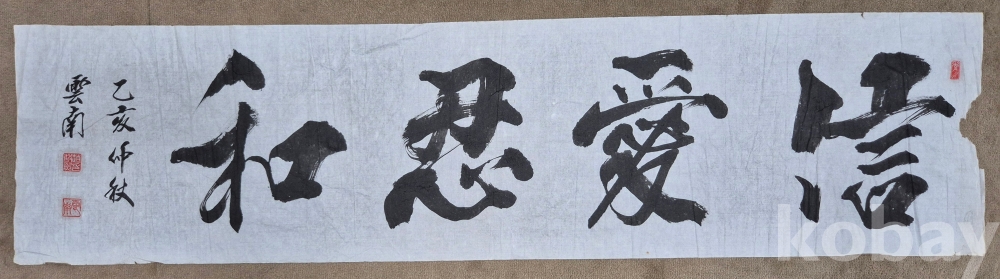 信愛忍和
乙亥仲秋
雲南
kobay